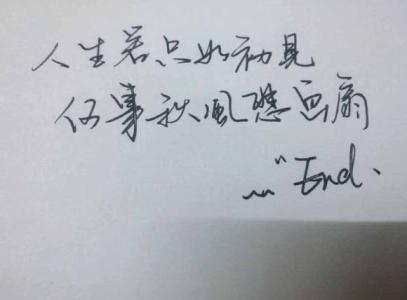 人生若只如初見
何事秋風悲画扇
~~" End.